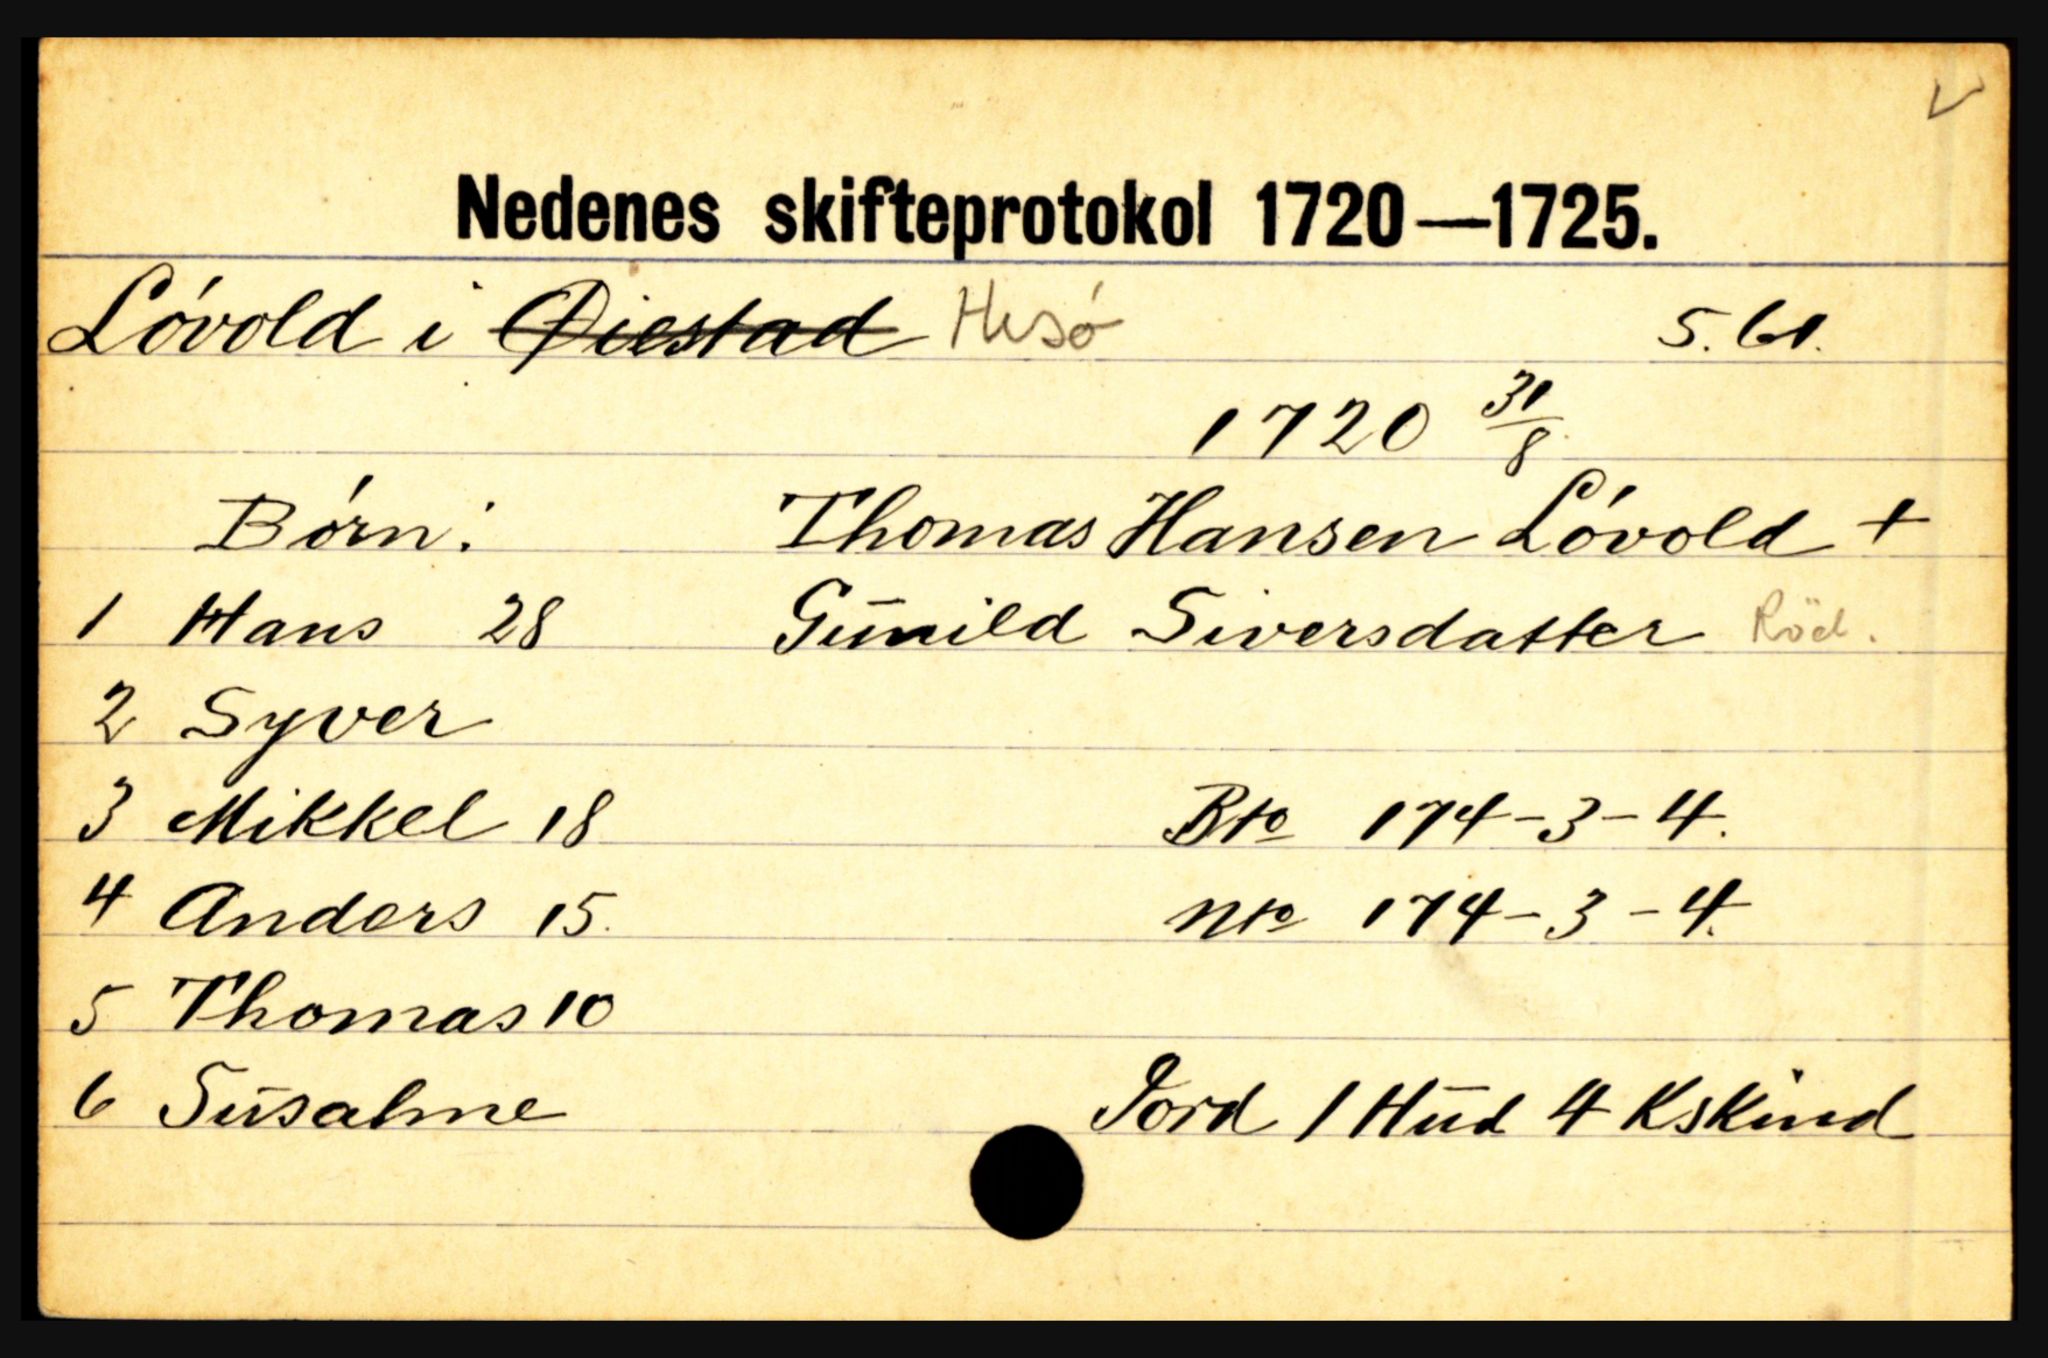 V
Nedenes skifteprotokol 1720—1725.
Lóvold i Øiestad Hisó 5. 61.
1720 31/8
Börn: Thomas Hansen Lóvold +
1 Hans 28 Gunild Siversdatter Röd.
2 Syver
3 Mikkel 18 Bto 174-3-4.
4 Anders 15. Nto 174-3-4.
5 Thomas 10
6 Susanne Jord 1 Hud 4 Kskind